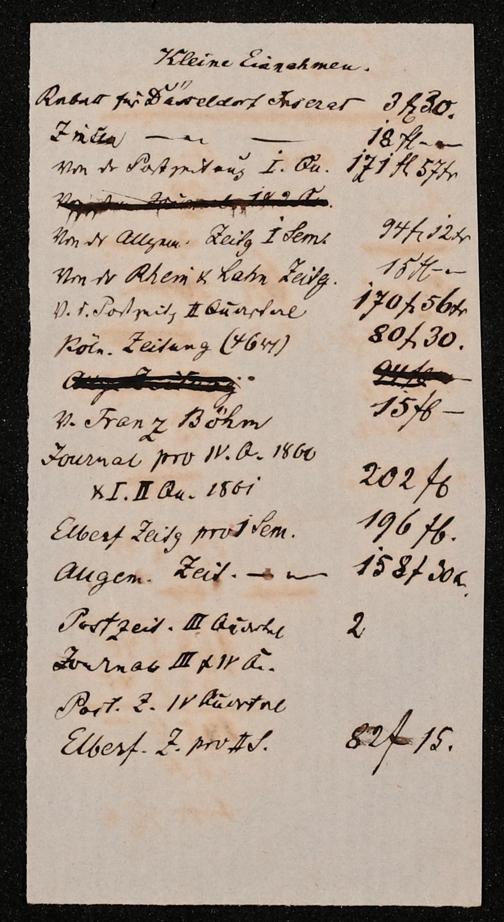 Kleine Einnahmen.
Rabatt für Düsseldorf Inserat 3 fl 30.
Zinsen — " — 18 fl - -
Von der Postzeitung I. Qu. 171 fl 57 kr
Von der Allgem. Zeitg I Sem. 94 fl 12 kr
Von der Rhein & Lahn Zeitg. 15 fl - -
V. d. Postzeitg II Quartal 170 f 56 kr
Köln. Zeitung (46 ) 80 f 30.
V. Franz Böhm 15 fl -
Journal pro IV. Q. 1860
& I. II Qu. 1861 202 fl
Elberf Zeitg pro I Sem. 196 fl.
Allgem. Zeit. — " — 158 f 30 k.
Postzeit. III Quartal 2
Journal III & IV Q.
Post. Z. IV Quartal
Elberf. Z. pro II S. 82 f 15.